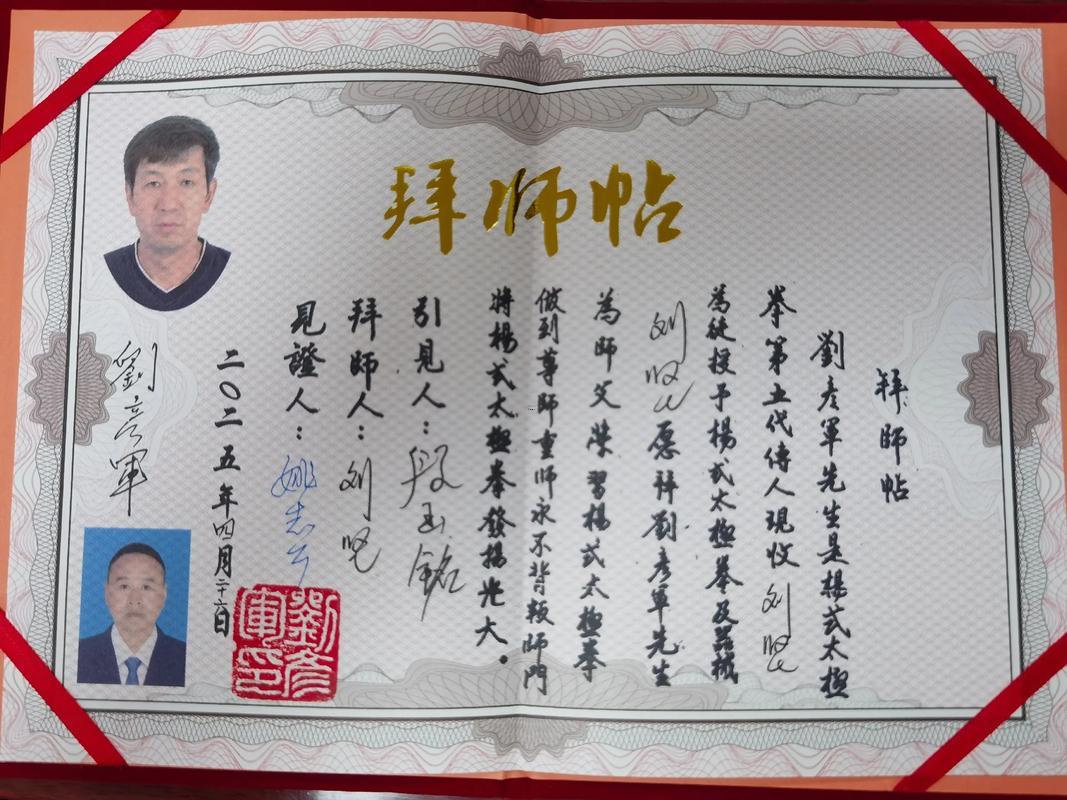 拜师帖
拜师帖
劉彥軍先生是楊式太極
拳第五代傳人現收刘
為徒授予楊式太極拳及器械
刘 愿拜劉彥軍先生
為師父榮習楊式太極拳
做到尊師重師永不背叛師門
將楊式太極拳發揚光大。
引見人：段玉銘
拜師人：刘
見證人：姚志
二〇二五年四月二十六日
劉彥軍
劉彥軍印